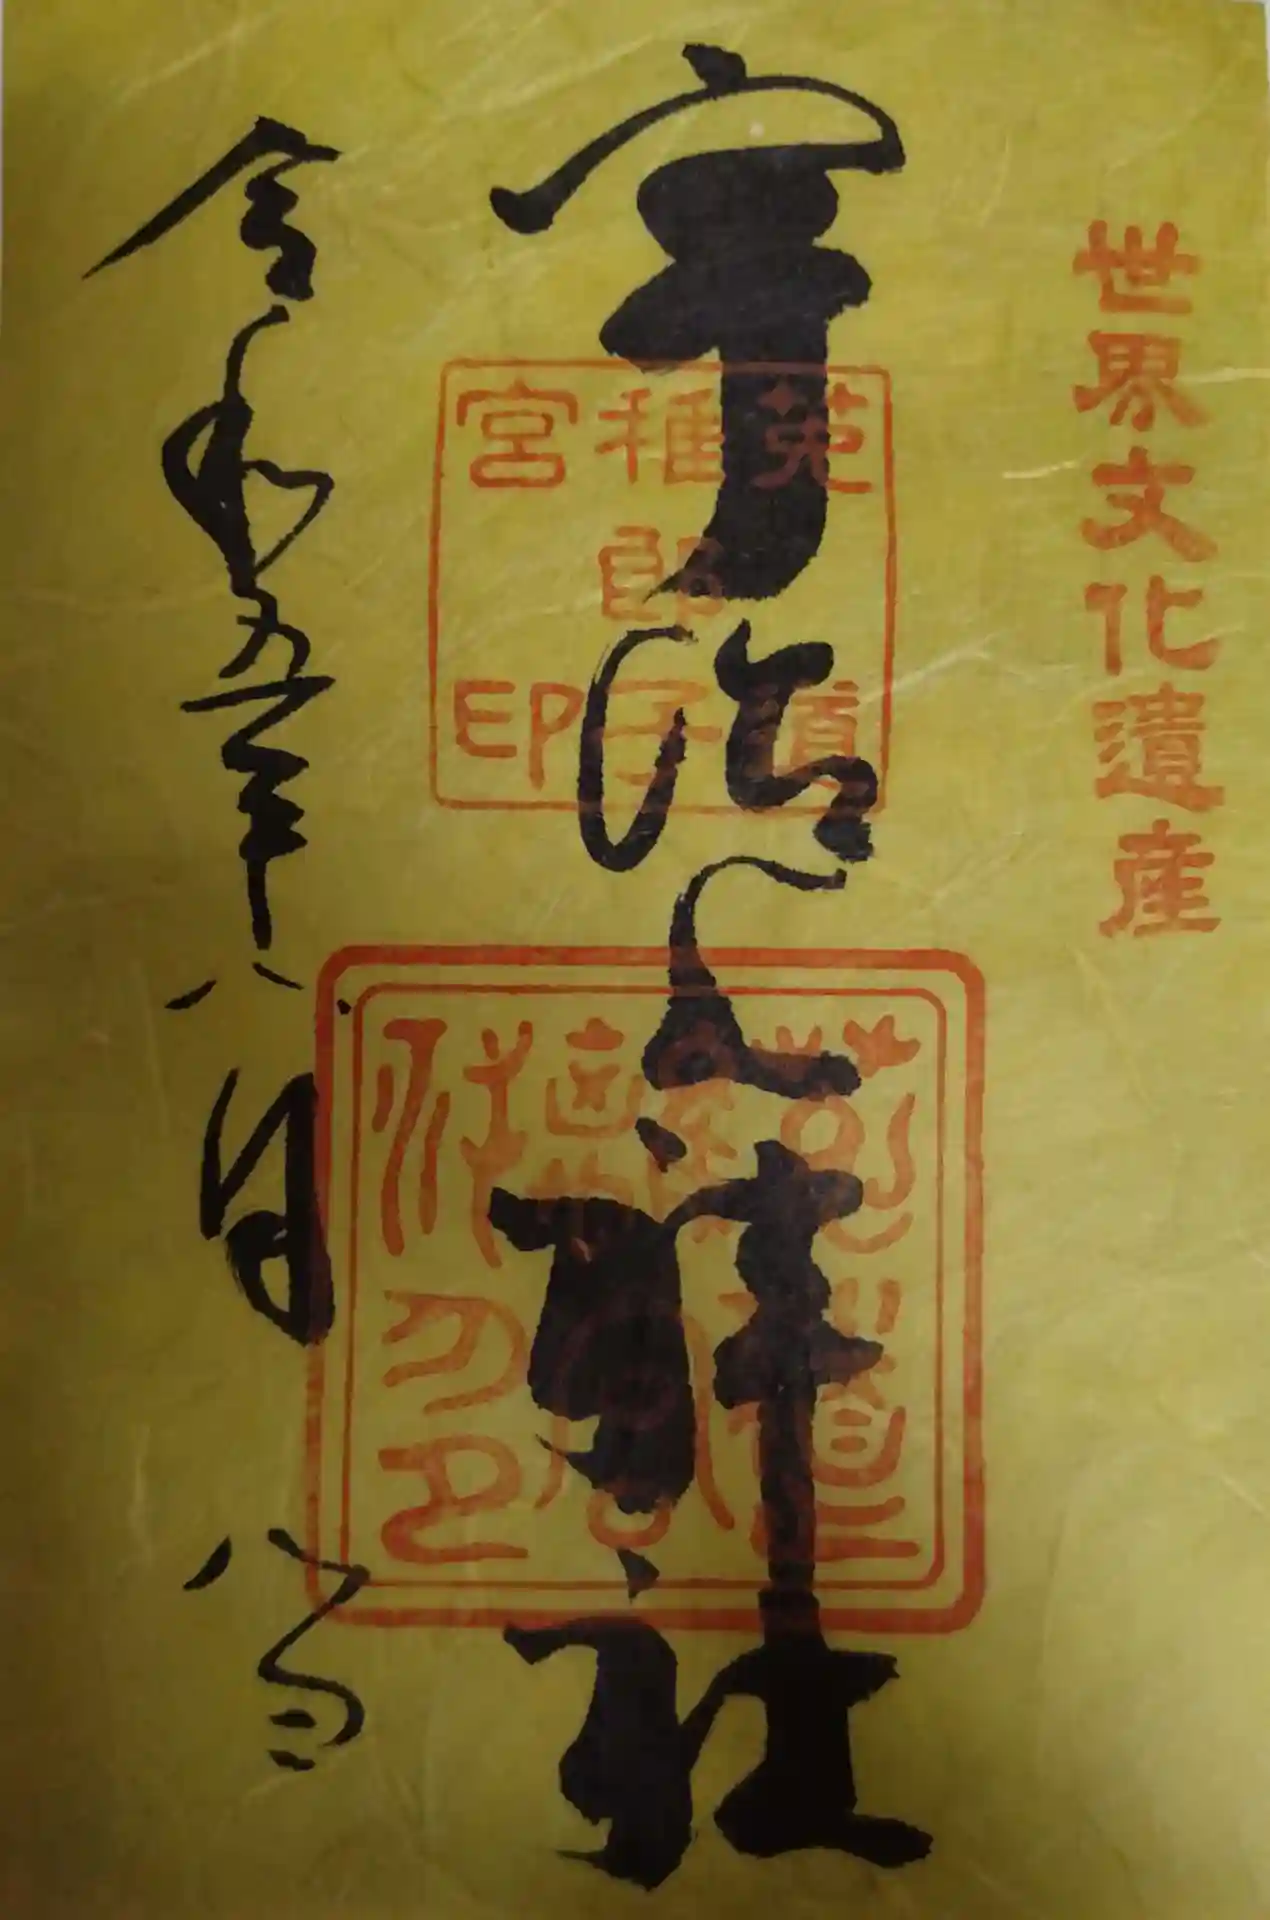 世界文化遺産
宇治上神社
菟道
稚郎子
宮印
令和五年八月八日